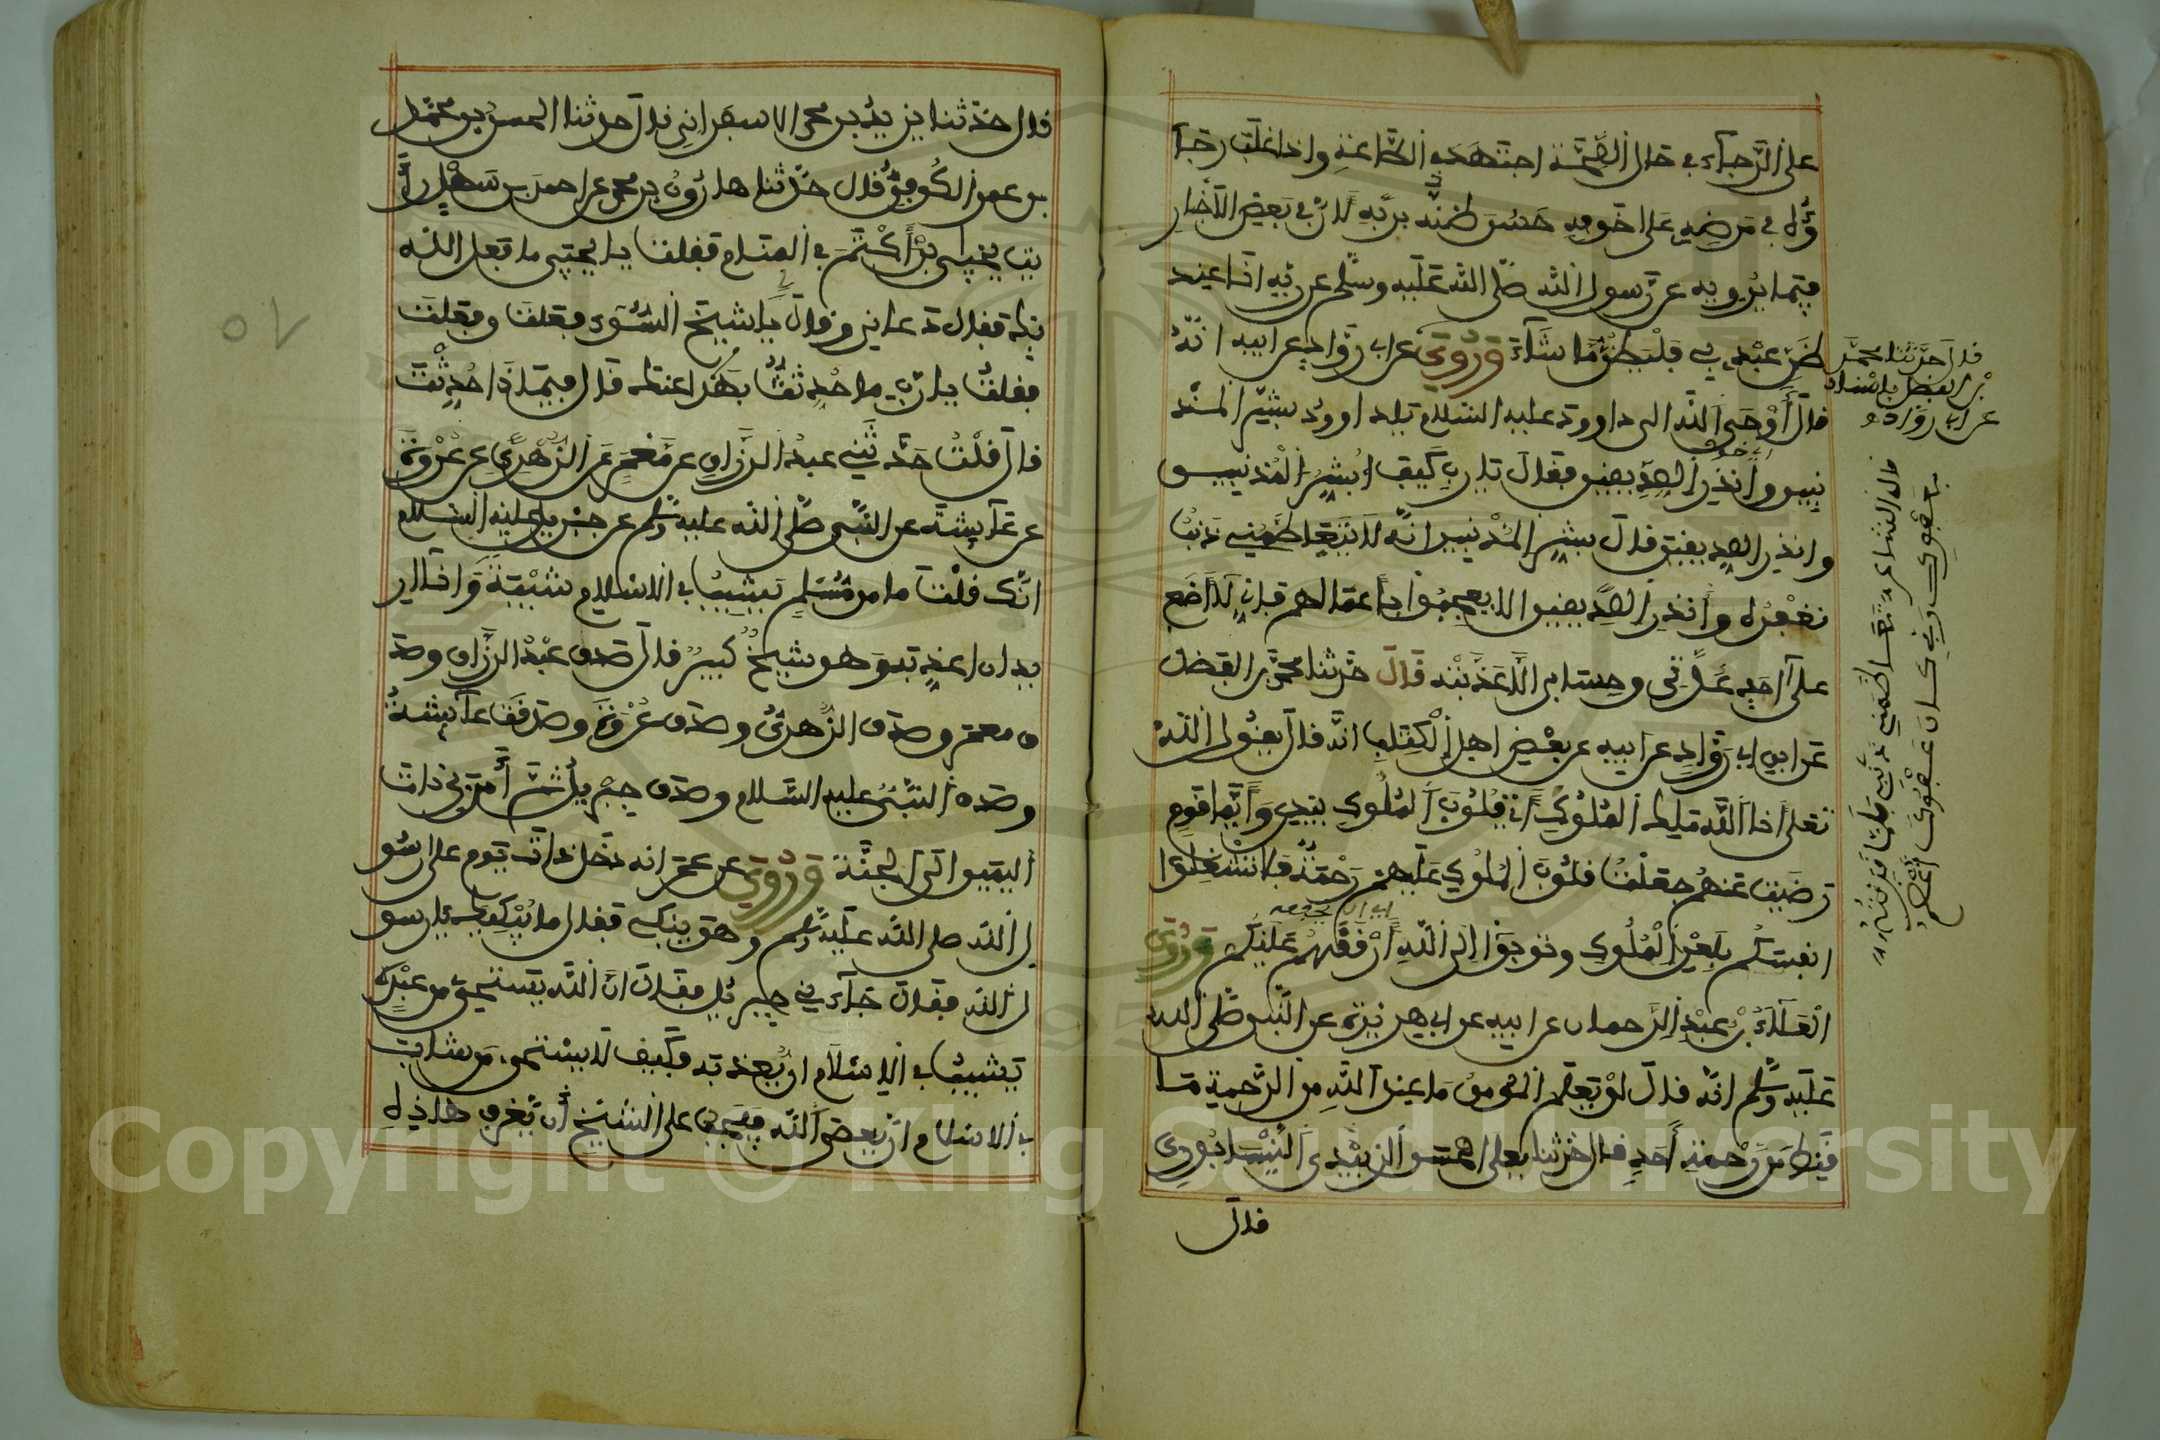 على الرجاء في حال الصحة اجتهد في الطاعة واذا غلب رجا
ؤه في مرضه على خوفه حسن ظنه بربه لان في بعض الاخبار
فيما يرويه عن رسول الله صلى الله عليه وسلم عن ربه انا عند
ظن عبدي بي فليظن ما شاء وروي عن ابن رواد عن ابيه انه
قال اوحى الله الى داوود عليه السلام يا داوود بشر المذ
نبين وانذر الصديقين فقال يا رب كيف ابشر المذنبين
وانذر الصديقين قال بشر المذنبين انه لا يتعاظمني ذنب
نغفره وانذر الصديقين الا يعجبوا باعمالهم فاني لا اضع
على احد عدلي وحسابي الا عذبته قال حدثنا محمد بن الفضل
عن ابن ابي رواد عن ابيه عن بعض اهل الكتاب انه قال يقول الله
تعلى انا الله مليك الملوك قلوب الملوك بيدي وايما قوم
رضيت عنهم جعلت قلوب الملوك عليهم رحمة فلا تشغلوا
انفسكم بلعن الملوك وتوبوا الى الله ارفقهم عليكم وروي
العلاء بن عبد الرحمان عن ابيه عن ابي هريرة عن النبي صلى الله
عليه وسلم انه قال لو يعلم المومن ما عند الله من الرحمة ما
قنط من رحمته احد قال حدثنا ابو الحسن النيسابوري
قال
قال حدثنا محمد
بن الفضل باسناد
عن ابن رواد
قال الشاعر تعاظمني ذنبي فلما قرنته
بعفوك ربي كان عفوك اعظم
قال حدثنا يزيد بن محمد الاسفرائني قال حدثنا الحسن بن محمد
بن عمر الكوفي قال حدثنا هارون بن محمد عن احمد بن سهل را
يت يحيى بن اكثم في المنام فقلت يا يحيى ما فعل الله
بك فقال دعاني وقال يا شيخ السوء فعلت وفعلت
فقلت يا رب ما حدثت بهذا عنك قال فبماذا حدثت
قال قلت حدثني عبد الرزاق عن معمر عن الزهري عن عروة
عن عائشة عن النبي صلى الله عليه وسلم عن جبريل عليه السلام
انك قلت ما من مسلم يشيب في الاسلام شيبة وانا ار
يد ان اعذبه وهو شيخ كبير قال صدق عبد الرزاق وصد
ق معمر وصدق الزهري وصدق عروة وصدقت عائشة
وصدق النبي عليه السلام وصدق جبريل ثم امر بي ذات
اليمين الى الجنة وروي عن عمر انه دخل ذات يوم على رسو
ل الله صلى الله عليه وسلم وهو يبكي فقال ما يبكيك يا رسو
ل الله فقال جاءني جبريل فقال ان الله يستحي من عبد
يشيب في الاسلام ان يعذبه فكيف لا يستحي من شاب
في الاسلام ان يعصي الله فيجب على الشيخ ان يعرف هاذه
Copyright © King Saud University